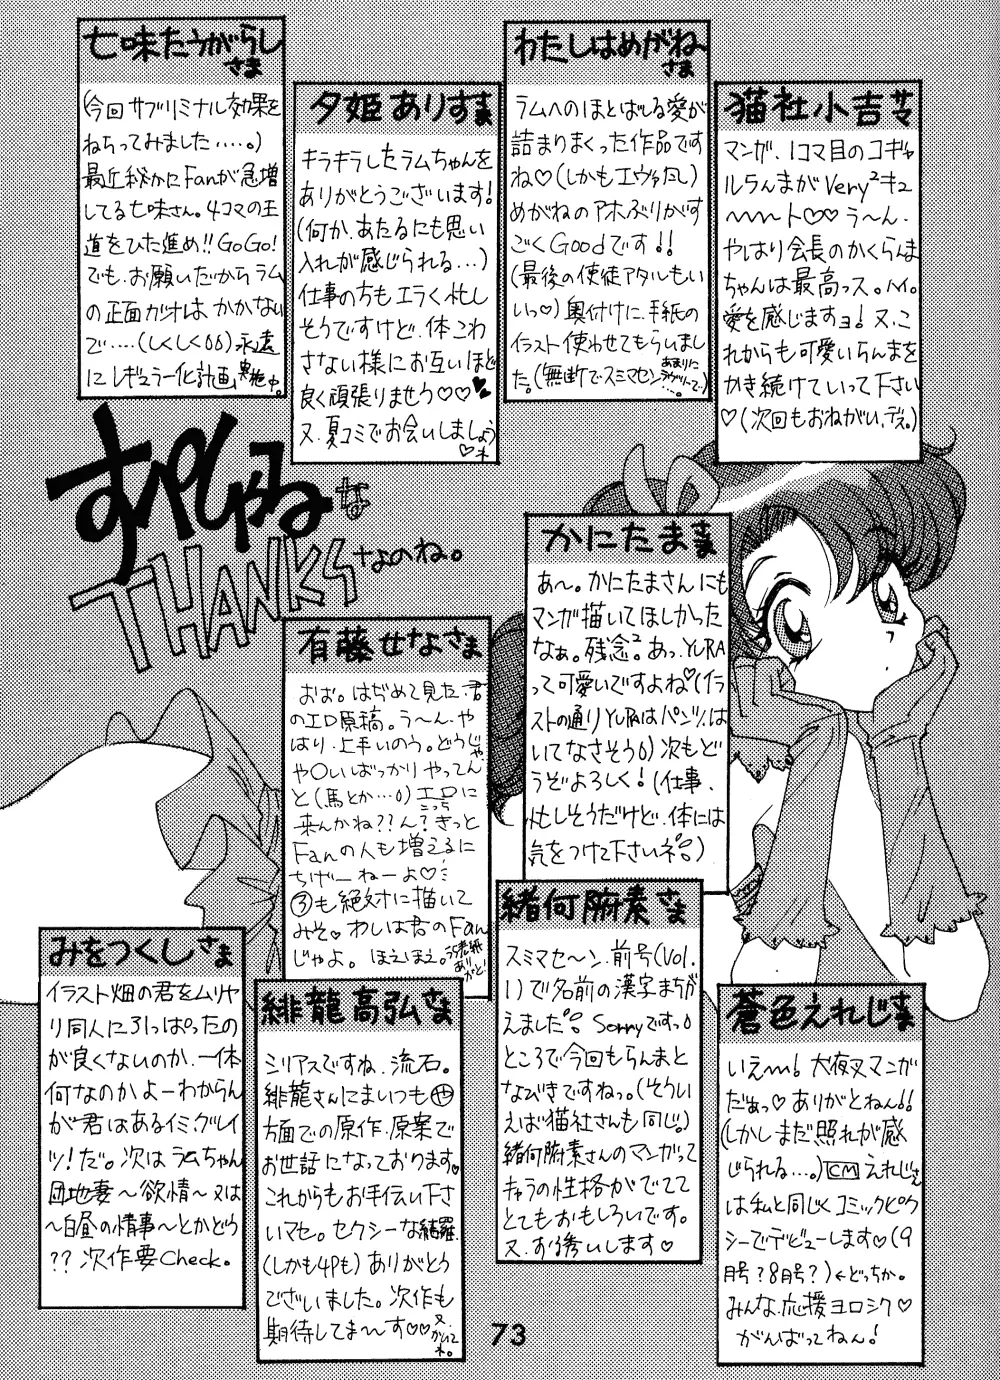 七味たうがらし
さま
(今回サブリミナル効果を
ねらってみました‥‥。)
最近秘かにFanが急増
してる七味さん。4コマの王
道をひた進め!!GoGo!
でも、お願いだからラム
の正面ガオは、かかない
で‥‥(しくしく)永遠
にレギュラー化計画実施中。
夕姫ありすさま
キラキラしたラムちゃんを
ありがとうございます!
(何か、あたるにも思い
入れが感じられる…)
仕事の方もエラく忙し
そうですけど、体こわ
さない様にお互いほど
良く頑張りませう♡♡♥
又、夏コミでお会いしましょう
♡ネ
わたしはめがね
さま
ラムへのほとばしる愛が
詰まりまくった作品です
ね♡(しかもエヴァだし)
めがねのアホぶりがす
ごくGoodです!!
(最後の使徒アタルもい
いっ♡)奥付けに、手紙の
イラスト使わせてもらいまし
た。(無断でスミマセン
あまりに
ラヴリーで
…。)
猫社小吉サマ
マンガ、1コマ目のコギャ
ルらんまがVery²キュ
〜〜〜ト♡♡う〜ん、
やはり会長のかくらんま
ちゃんは最高っス。ハイ。
愛を感じますヨ!又、こ
れからも可愛いらんまを
かき続けていって下さい
♡(次回もおねがい、デス。)
すぺしゃるな
THANKSなのね。
かにたまさま
あ〜。かにたまさんにも
マンガ描いてほしかった
なぁ。残念²。あっ、YURA
って可愛いですよね♡(イラ
ストの通りYURAはパンツ、は
いてなさそう)次もど
うぞよろしく!(仕事、
忙しそうだけど、体には
気をつけて下さいネ。)
有藤せなさま
おお。はぢめて見た、君
のエロ原稿。う〜ん、や
はり、上手いのう。どうじゃ
や○いばっかりやってん
と(馬とか…)エロに
こっち
来んかね??ん?きっと
Fanの人も増えるに
ちげーねーよ♡
③も絶対に描いて
みそ♡わしは君のFan
じゃよ。ほえほえ。
うら表紙
ありがと!
緒何腑素さま
スミマセ〜ン、前号(Vol.
1)で名前の漢字まちが
えました。Sorryですっ
ところで今回もらんまと
なびきですねっ。(そうい
えば猫社さんも同じ。)
緒何腑素さんのマンガって
キャラの性格がでてて
とてもおもしろいです。
又、お誘いします♡
みをつくしさま
イラスト畑の君をムリヤ
リ同人に引っぱったの
が良くないのか、一体
何なのかよーわからん
が君はあるイミ、グレイ
ツ!だ。次はラムちゃん
団地妻〜欲情〜又は
〜白昼の情事〜とかどう
??次作要Check。
緋龍高弘さま
シリアスですね、流石。
緋龍さんにまいつも
方面での原作、原案で
お世話になっております。
これからもお手伝い下さ
いマセ。セクシーな綺羅
(しかも4Pも)ありがとう
ございました。次作も
期待してま〜す♡♡
又、かいて
ネ。
蒼色えれじさま
いえ〜い!犬夜叉マンガ
だぁっ♡ありがとねん!!
(しかしまだ照れが感
じられる…。)CMえれじさん
は私と同じくコミックピク
シーでデビューします♡(9
月号?8月号?)←どっちか。
みんな、応援ヨロシク♡
がんばってねん!
73